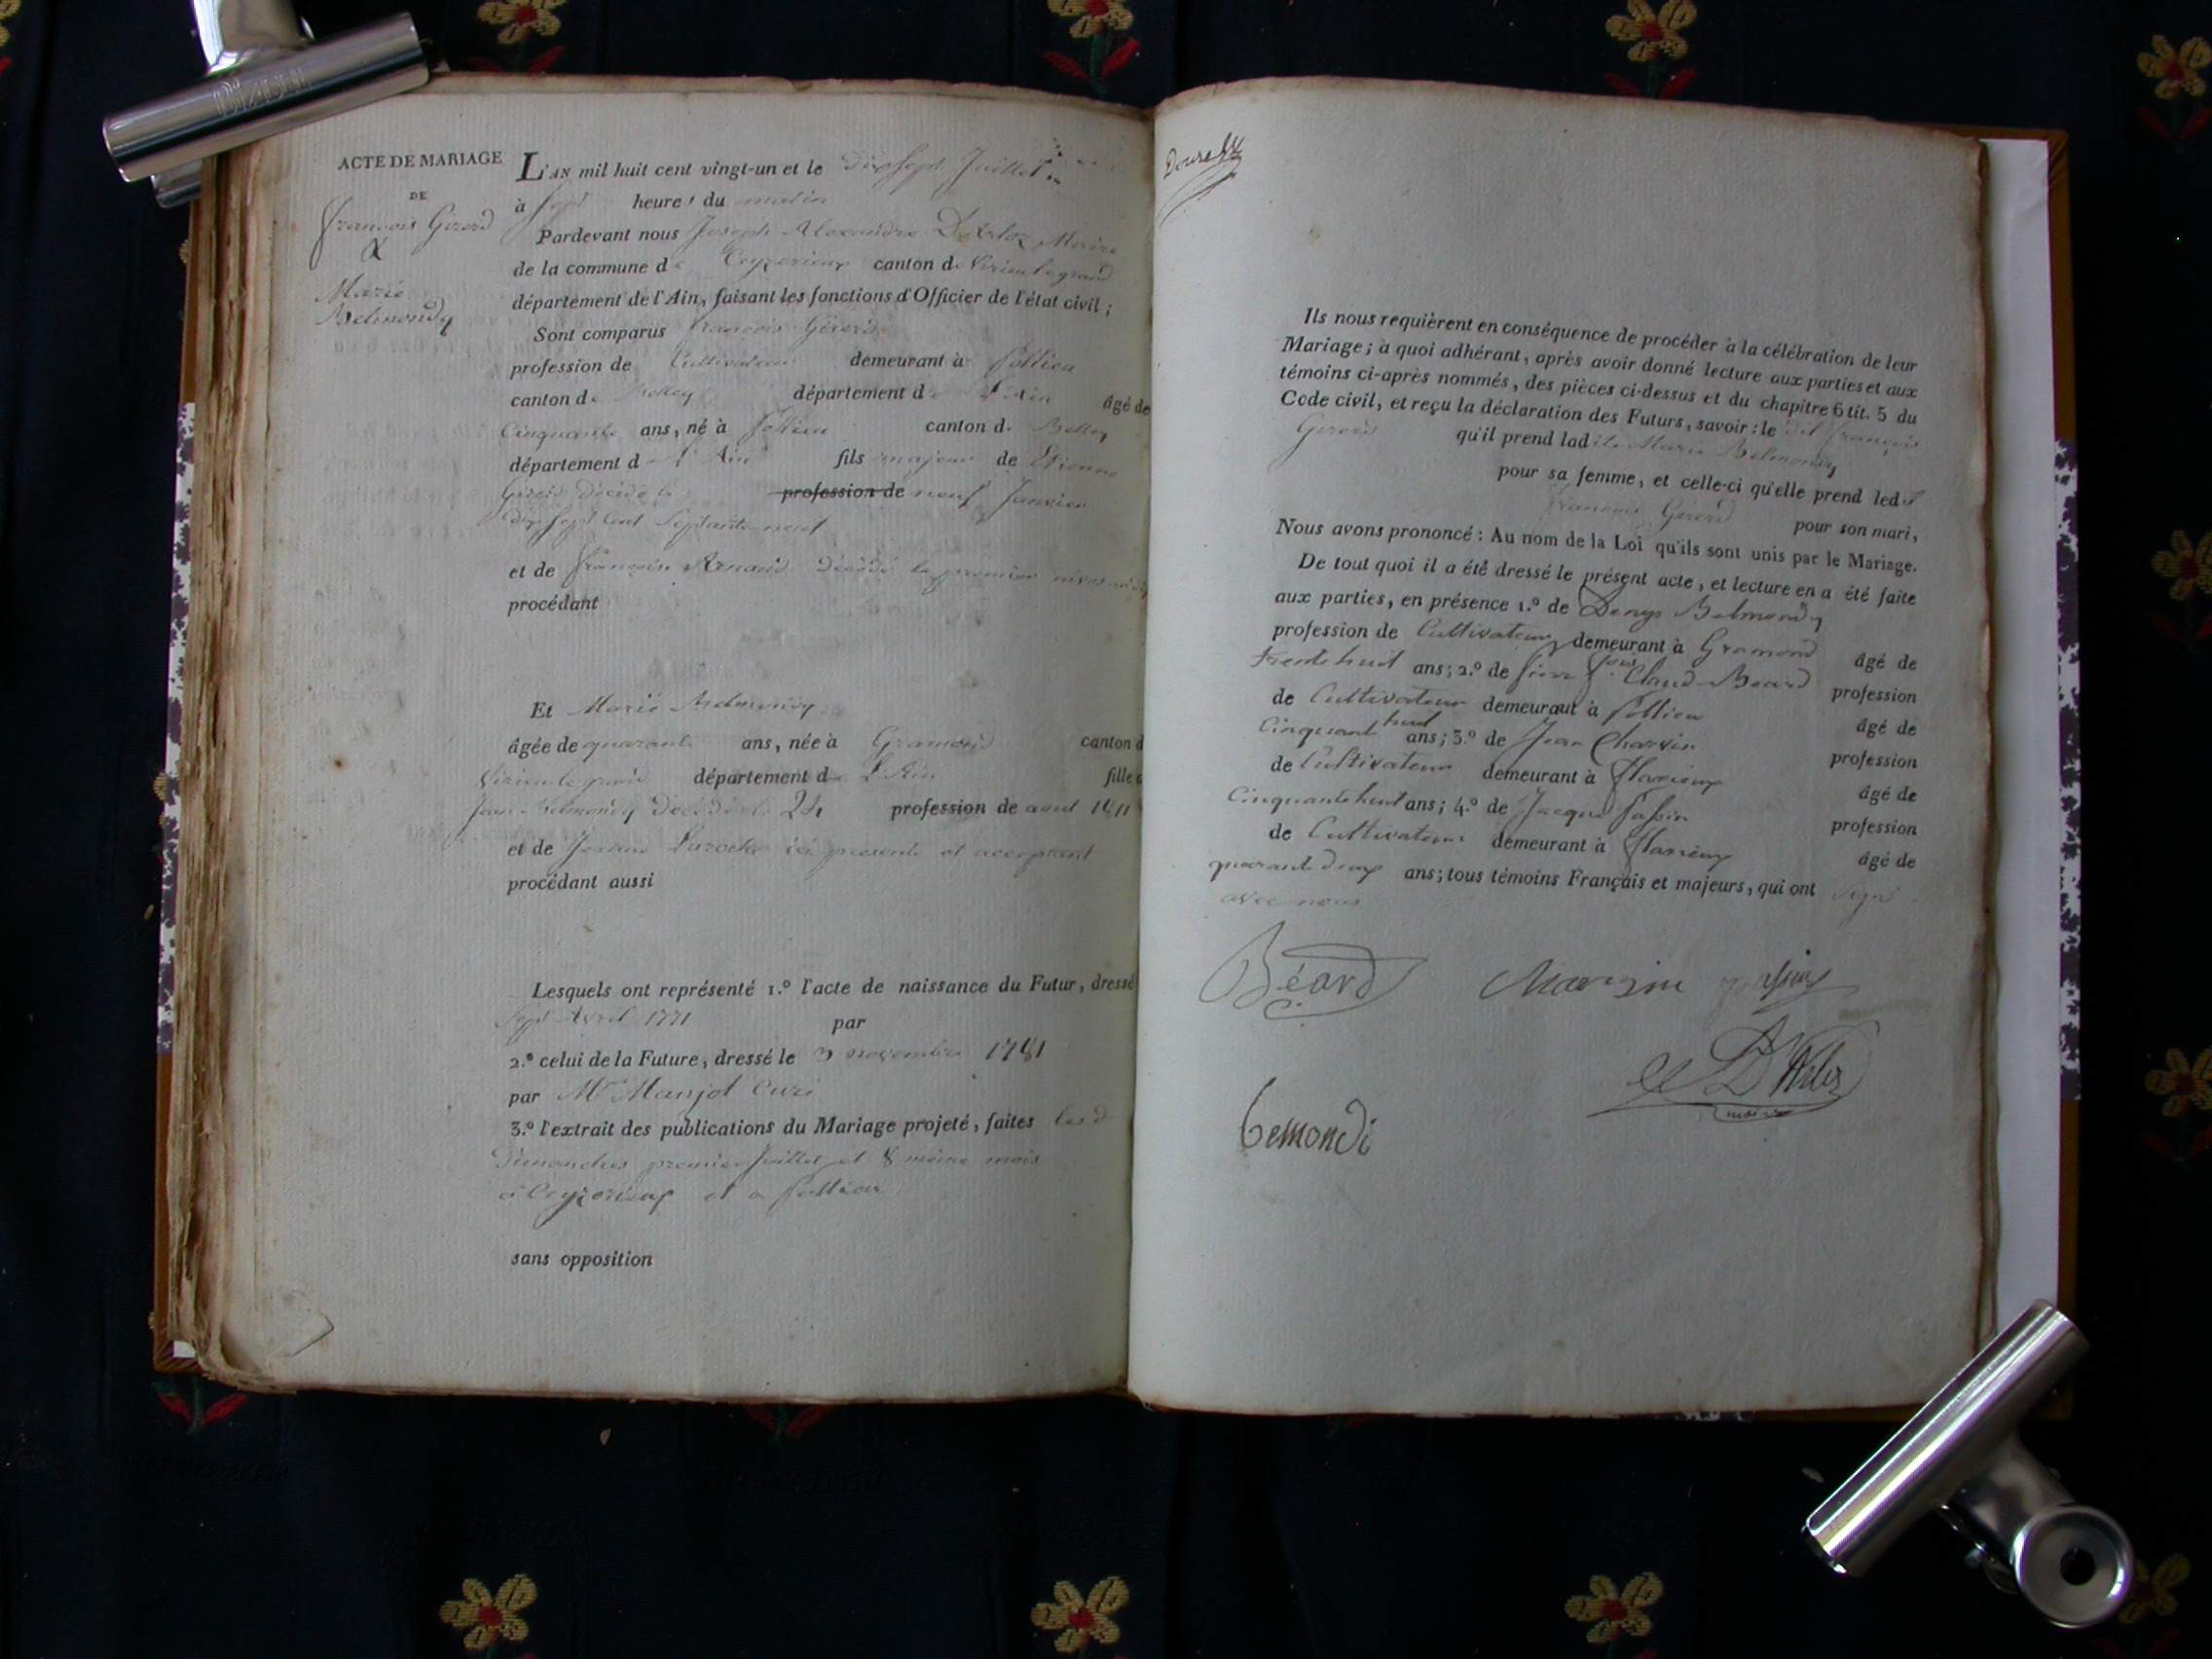 ACTE DE MARIAGE
DE
François Gererd
&
Marie
Belmondy
L'AN mil huit cent vingt-un et le dix Sept Juillet
à Sept heures du matin
Pardevant nous Joseph Alexandre Maire
de la commune de Ceyzerieux canton de Virieu le grand
département de l'Ain, faisant les fonctions d'Officier de l'état civil;
Sont comparus François Gererd
profession de Cultivateur demeurant à Pollieu
canton de Belley département de l'Ain âgé de
Cinquante ans, né à Pollieu canton de Belley
département de l'Ain fils majeur de Etienne
Gererd décédé le profession de neuf Janvier
dix Sept Cent Septante neuf
et de Françoise Arnaud décédé le premier
procédant
Et Marie Belmondy
âgée de quarante ans, née à Gramond canton d
Virieu le grand département de L'Ain fille d
Jean Belmondy décédé le 24 profession de aout 1811
et de Laroche ici presente et acceptant
procédant aussi
Lesquels ont représenté 1.º l'acte de naissance du Futur, dressé
Sept Avril 1771 par
2.º celui de la Future, dressé le 3 novembre 1781
par Mr Manjot Curé
3.º l'extrait des publications du Mariage projeté, faites les d
Dimanches premier Juillet et 8 même mois
à Ceyzerieux et a Pollieu
sans opposition
Ils nous requièrent en conséquence de procéder à la célébration de leur
Mariage; à quoi adhérant, après avoir donné lecture aux parties et aux
témoins ci-après nommés, des pièces ci-dessus et du chapitre 6 tit. 5 du
Code civil, et reçu la déclaration des Futurs, savoir: le dit François
Gererd qu'il prend ladite Marie Belmondy
pour sa femme, et celle-ci qu'elle prend ledit
François Gererd pour son mari,
Nous avons prononcé: Au nom de la Loi qu'ils sont unis par le Mariage.
De tout quoi il a été dressé le présent acte, et lecture en a été faite
aux parties, en présence 1.º de Denys Belmondy
profession de Cultivateur demeurant à Gramond âgé de
trente huit ans; 2.º de Claud Beard profession
de Cultivateur demeurant à Pollieu âgé de
Cinquant huit ans; 3.º de Jean Charvin profession
de Cultivateur demeurant à Flavieux âgé de
Cinquante huit ans; 4.º de Jacque profession
de Cultivateur demeurant à Flavieux âgé de
quarante deux ans; tous témoins Français et majeurs, qui ont signé
avec nous
Béard
bemondi
maire